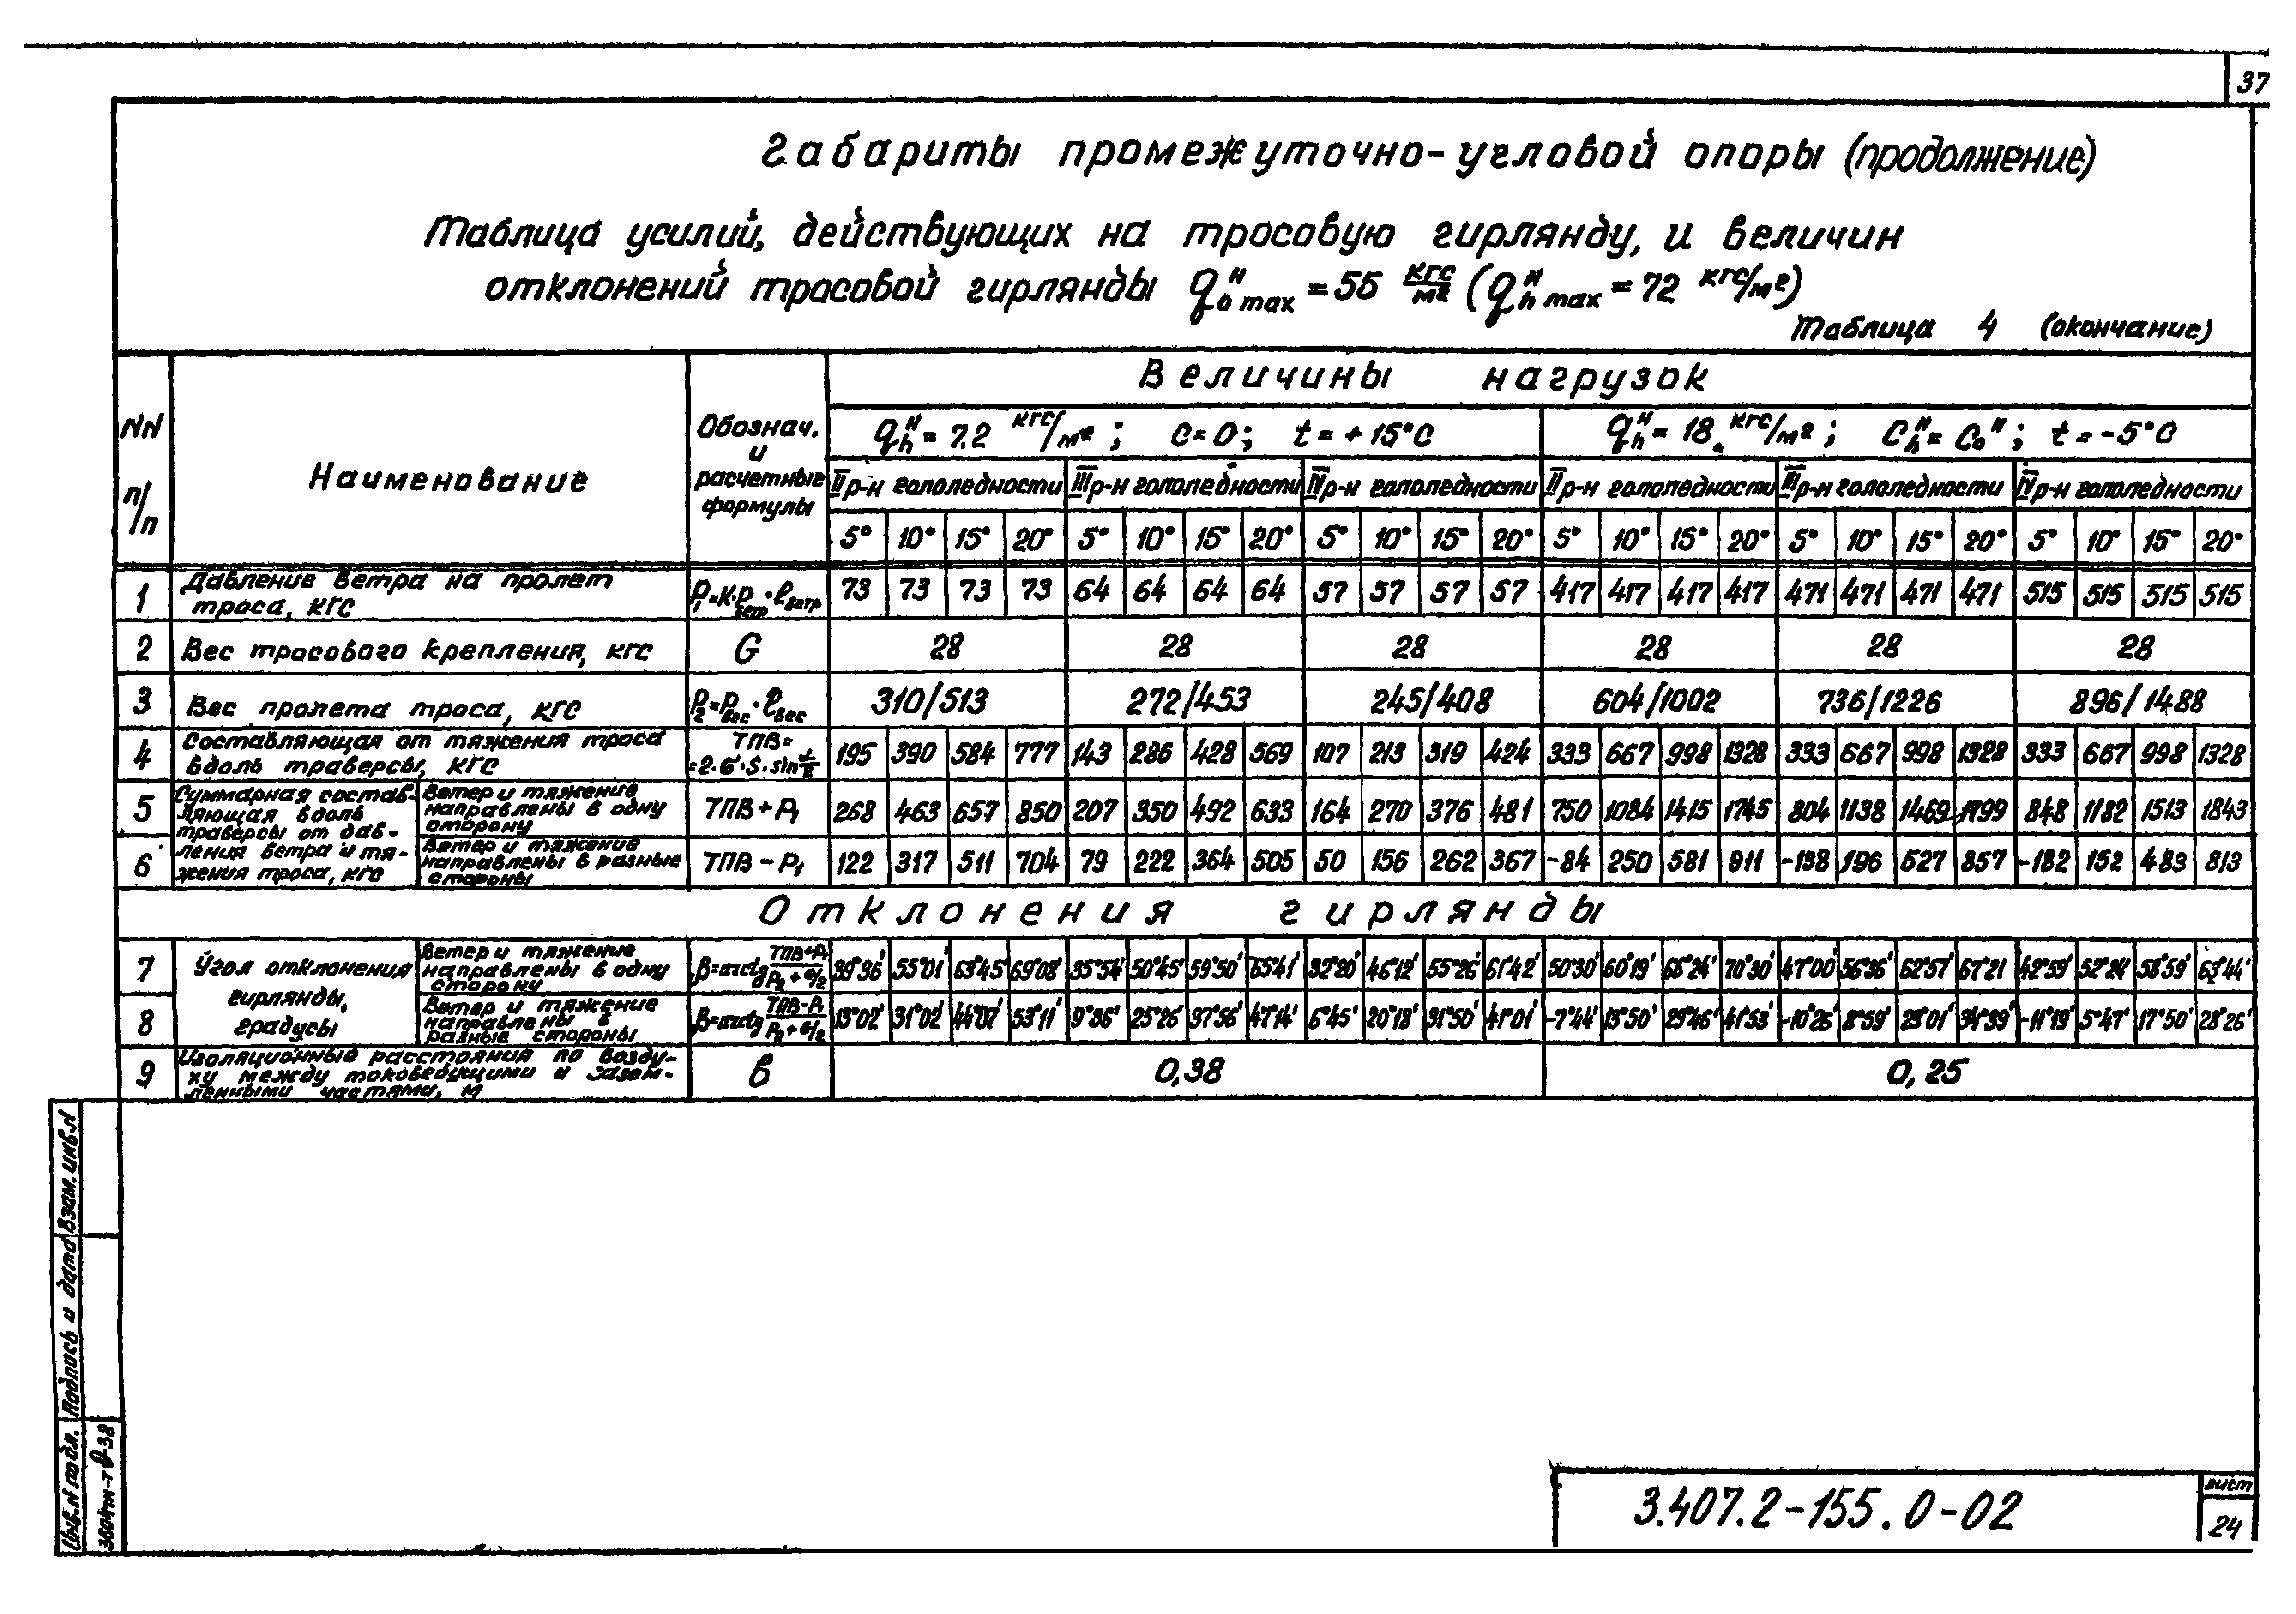 37
Габариты промежуточно-угловой опоры (продолжение)
Таблица усилий, действующих на тросовую гирлянду, и величин
отклонений тросовой гирлянды qᴴ₀ max = 55 кгс/м² (qᴴh max = 72 кгс/м²)
Таблица 4 (окончание)
NN п/п
Наименование
Обознач. и расчетные формулы
Величины нагрузок
qᴴh = 7.2 кгс/м²; C=0; t=+15°C
qᴴh = 18 кгс/м²; Cᴴh = C₀ᴴ; t=-5°C
II р-н гололедности III р-н гололедности IV р-н гололедности II р-н гололедности III р-н гололедности IV р-н гололедности
5° 10° 15° 20° 5° 10° 15° 20° 5° 10° 15° 20° 5° 10° 15° 20° 5° 10° 15° 20° 5° 10° 15° 20°
1 Давление ветра на пролет троса, кгс P₁=K·Pветр·ℓветр 73 73 73 73 64 64 64 64 57 57 57 57 417 417 417 417 471 471 471 471 515 515 515 515
2 Вес тросового крепления, кгс G 28 28 28 28 28 28
3 Вес пролета троса, кгс P₂=Pвес·ℓвес 310/513 272/453 245/408 604/1002 736/1226 896/1488
4 Составляющая от тяжения троса вдоль траверсы, кгс ТПВ= =2·σ·S·sin 195 390 584 777 143 286 428 569 107 213 319 424 333 667 998 1328 333 667 998 1328 333 667 998 1328
Суммарная составляющая вдоль траверсы от давления ветра и тяжения троса, кгс
5 Ветер и тяжение направлены в одну сторону ТПВ+P₁ 268 463 657 850 207 350 492 633 164 270 376 481 750 1084 1415 1745 804 1138 1469 1799 848 1182 1513 1843
6 Ветер и тяжение направлены в разные стороны ТПВ-P₁ 122 317 511 704 79 222 364 505 50 156 262 367 -84 250 581 911 -138 196 527 857 -182 152 483 813
Отклонения гирлянды
Угол отклонения гирлянды, градусы
7 Ветер и тяжение направлены в одну сторону β=arctg (ТПВ+P₁)/(P₂+G/2) 39°36′ 55°01′ 63°45′ 69°08′ 35°54′ 50°45′ 59°50′ 65°41′ 32°20′ 46°12′ 55°26′ 61°42′ 50°30′ 60°19′ 66°24′ 70°30′ 47°00′ 56°36′ 62°57′ 67°21 42°59′ 52°24′ 58°59′ 63°44′
8 Ветер и тяжение направлены в разные стороны β=arctg (ТПВ-P₁)/(P₂+G/2) 13°02′ 31°02′ 44°07′ 53°11′ 9°36′ 25°26′ 37°56′ 47°14′ 6°45′ 20°18′ 31°50′ 41°01′ -7°44′ 13°50′ 29°46′ 41°53′ -10°26′ 8°59′ 23°01′ 34°39′ -11°19′ 5°47′ 17°50′ 28°26′
9 Изоляционные расстояния по воздуху между токоведущими и заземленными частями, м В 0,38 0,25
Инв.N подл. Подпись и дата Взам. инв.N
3604тм-т
38
3.407.2-155.0-02
лист
24